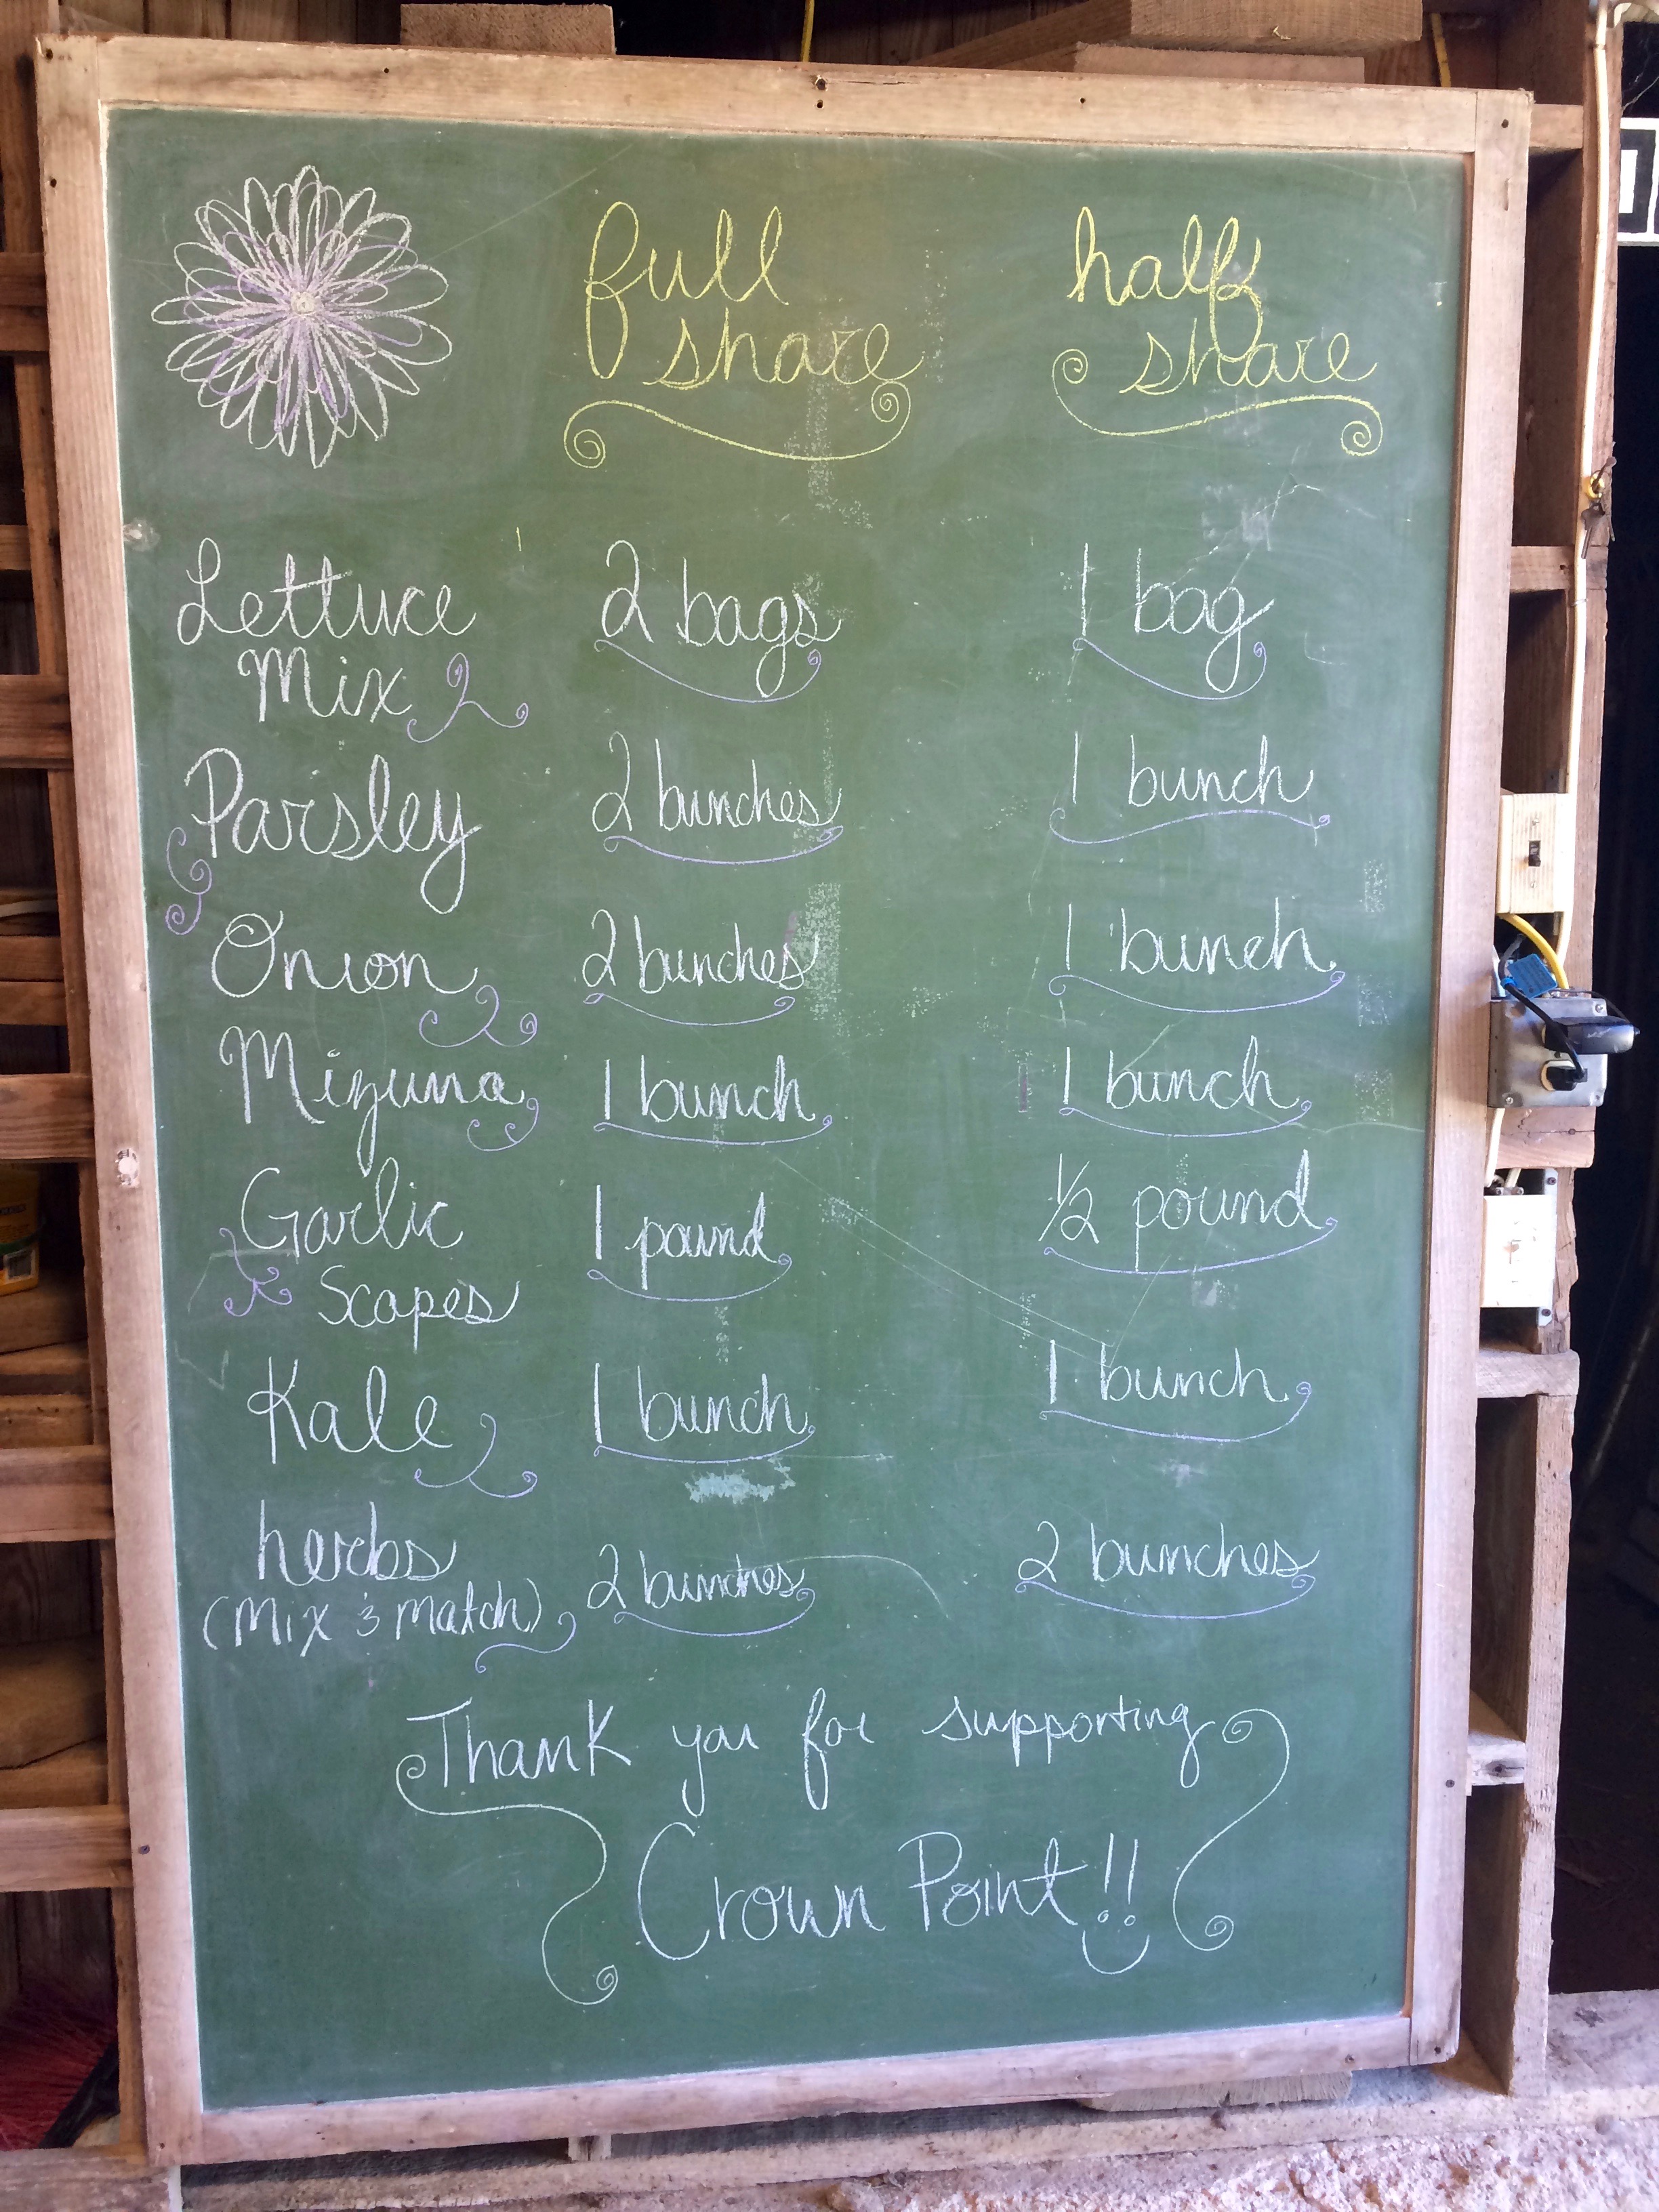 full half
share share
Lettuce 2 bags 1 bag
Mix
Parsley 2 bunches 1 bunch
Onion 2 bunches 1 bunch
Mizuna 1 bunch 1 bunch
Garlic 1 pound ½ pound
Scapes
Kale 1 bunch 1 bunch
herbs 2 bunches 2 bunches
(Mix & Match)
Thank you for supporting
Crown Point!!